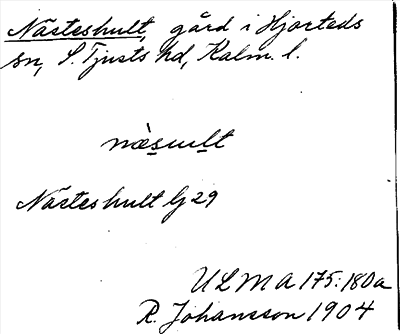 Nästeshult, gård i Hjorteds
sn, S. Tjusts hd, Kalm. l.
næ̀sult
Nästeshult Gj 29
ULMA 175:180a
R. Johansson 1904